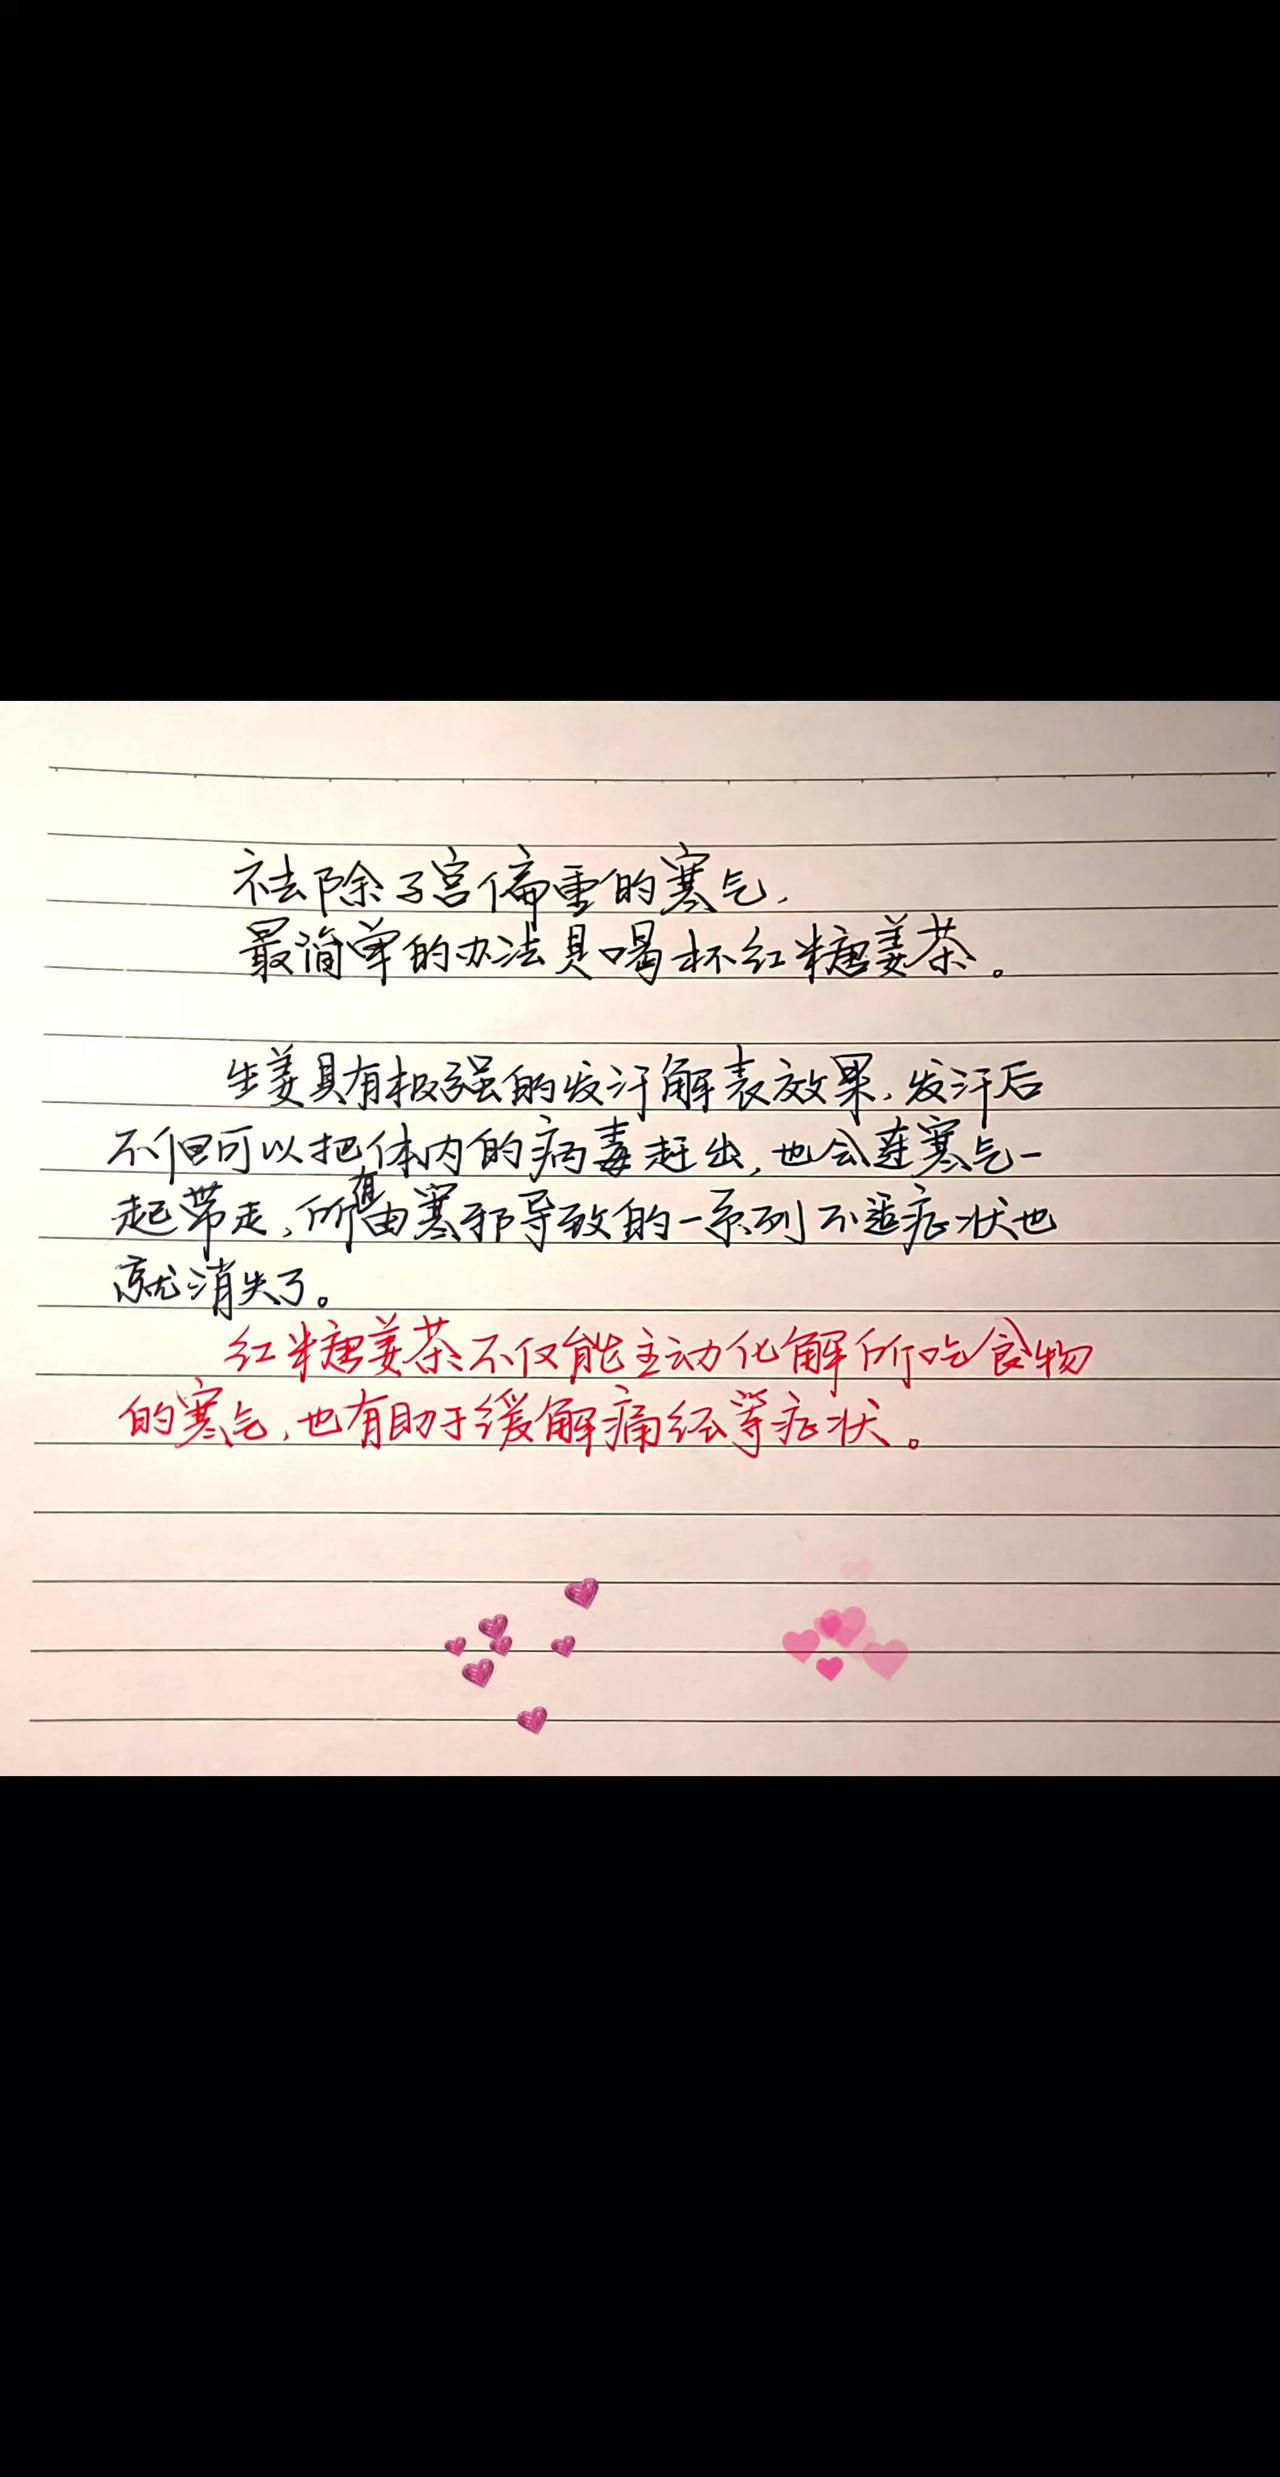 祛除子宫偏重的寒气,
最简单的办法是喝杯红糖姜茶。
生姜具有极强的发汗解表效果,发汗后
不但可以把体内的病毒赶出,也会连寒气一
起带走,所有由寒邪导致的一系列不适症状也
就消失了。
红糖姜茶不仅能主动化解所吃食物
的寒气,也有助于缓解痛经等症状。